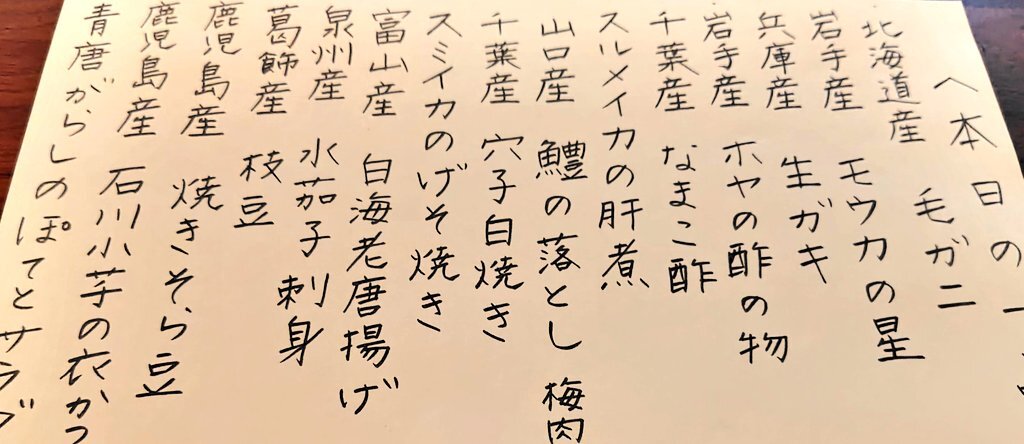 へ本日の一
北海道産 毛ガニ
岩手産 モウカの星
兵庫産 生ガキ
岩手産 ホヤの酢の物
千葉産 なまこ酢
スルメイカの肝煮
山口産 鱧の落とし 梅肉
千葉産 穴子白焼き
スミイカのげそ焼き
富山産 白海老唐揚げ
泉州産 水茄子 刺身
葛飾産 枝豆
鹿児島産 焼きそら豆
鹿児島産 石川小芋の衣かつ
青唐がらしのぽてとサラダ